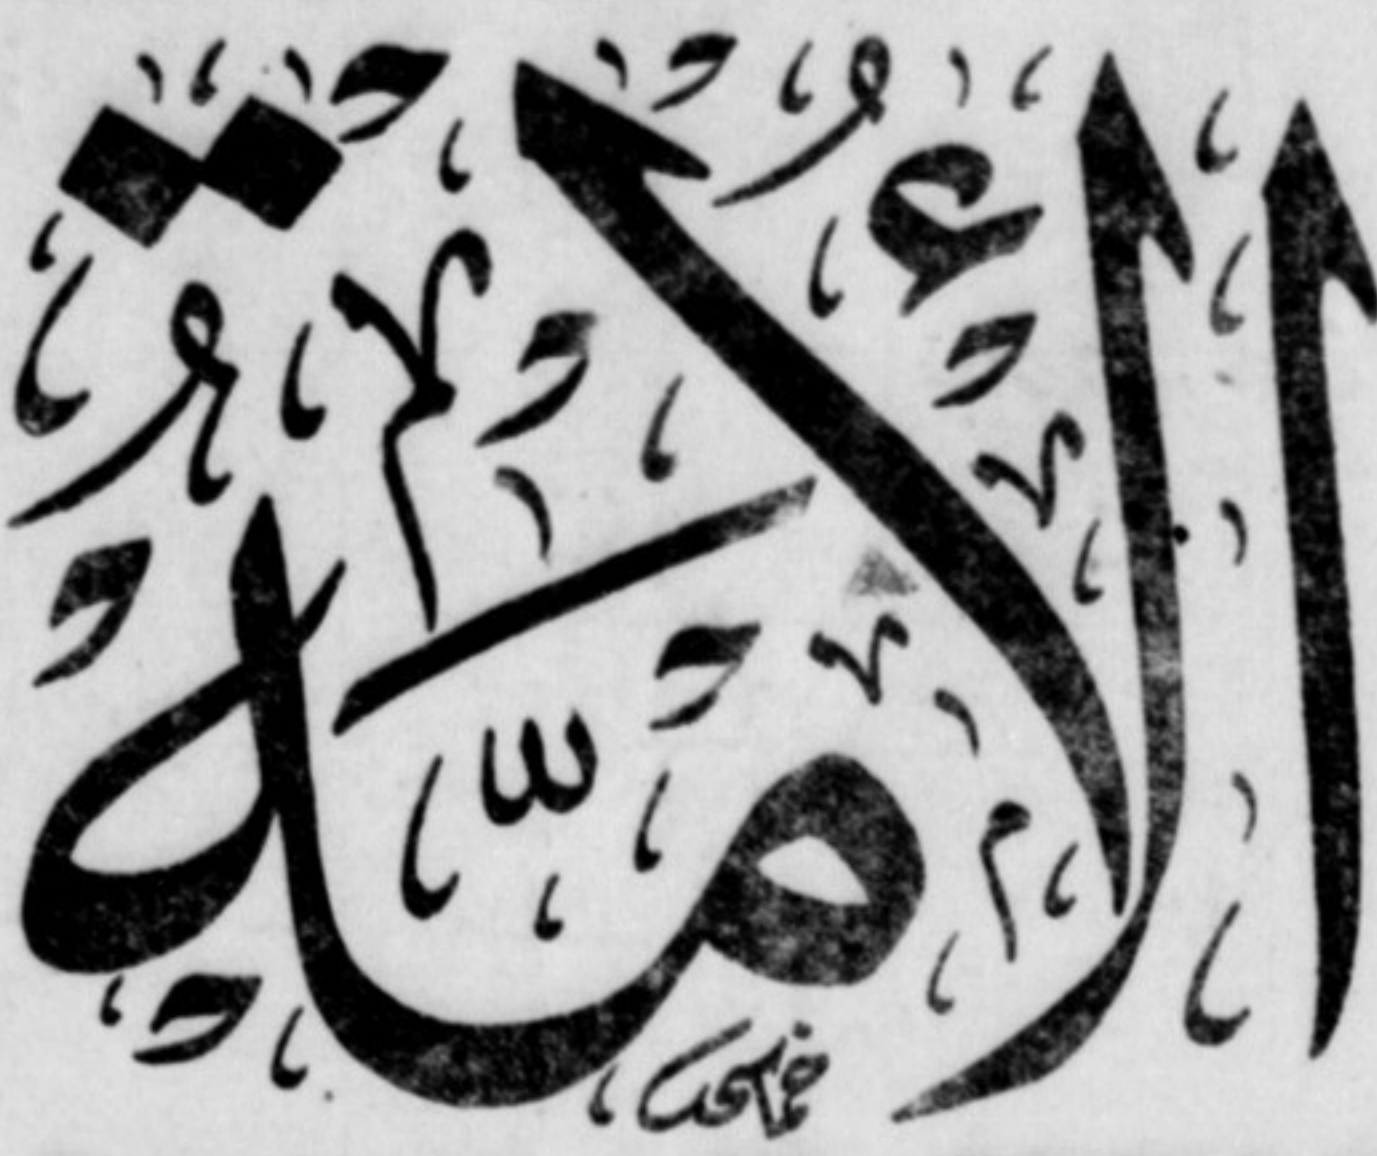 الأُمَّةُ